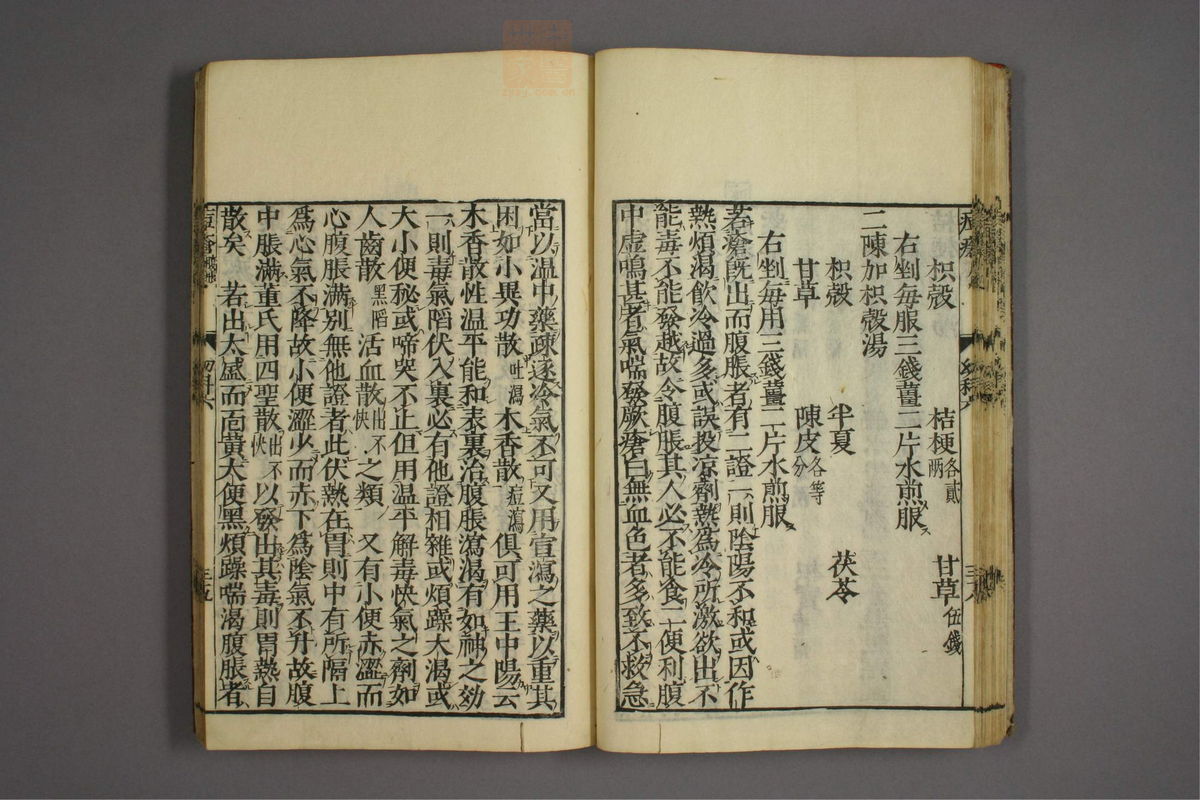 枳殼 桔梗各貳兩 甘草伍錢
右剉每服三錢薑二片水煎服
二陳加枳殼湯
枳殼 半夏 茯苓
甘草 陳皮各等分
右剉每用三錢薑二片水煎服
若瘡既出而腹脹者有二證一則陰陽不和或因作
熱煩渴飲冷過多或誤投凉劑熱爲冷所激欲出不
能毒不能發越故令腹脹其人必不能食二便利腹
中虛鳴甚者氣喘發厥瘡白無血色者多致不救急
當以温中藥疎逐冷氣不可又用宣瀉之藥以重其
困如小異功散吐瀉木香散痘瀉俱可用王中陽云
木香散性温平能和表裏治腹脹瀉渴有如神之効
一則毒氣陷伏入裏必有他證相雜或煩躁大渴或
大小便秘或啼哭不止但用温平解毒快氣之劑如
人齒散黑陷活血散出不快之類 又有小便赤澀而
心腹脹滿别無他證者此伏熱在胃則中有所隔上
爲心氣不降故小便澀少而赤下爲陰氣不升故腹
中脹滿董氏用四聖散出不快以發出其毒則胃熱自
散矣 若出太盛而面黃大便黑煩躁喘渴腹脹者
幼科六
三五